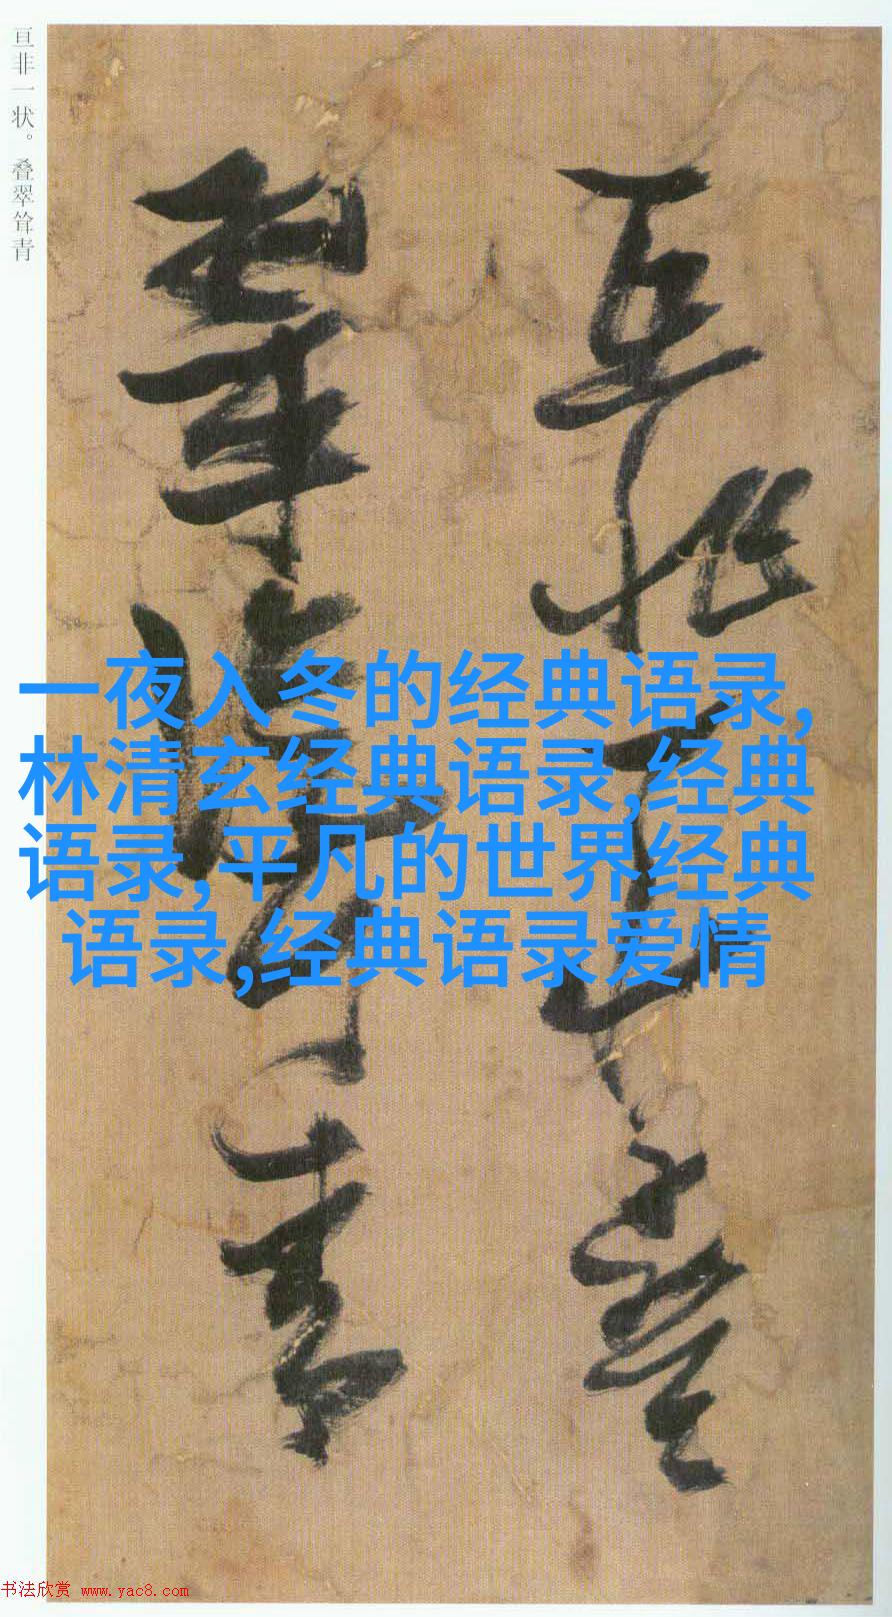 亘非一状。叠翠耸青
亘非一状叠
翠耸青
一夜入冬的经典语录,
林清玄经典语录,经典
语录,平凡的世界经典
语录,经典语录爱情
书法欣赏 www.yac8.com